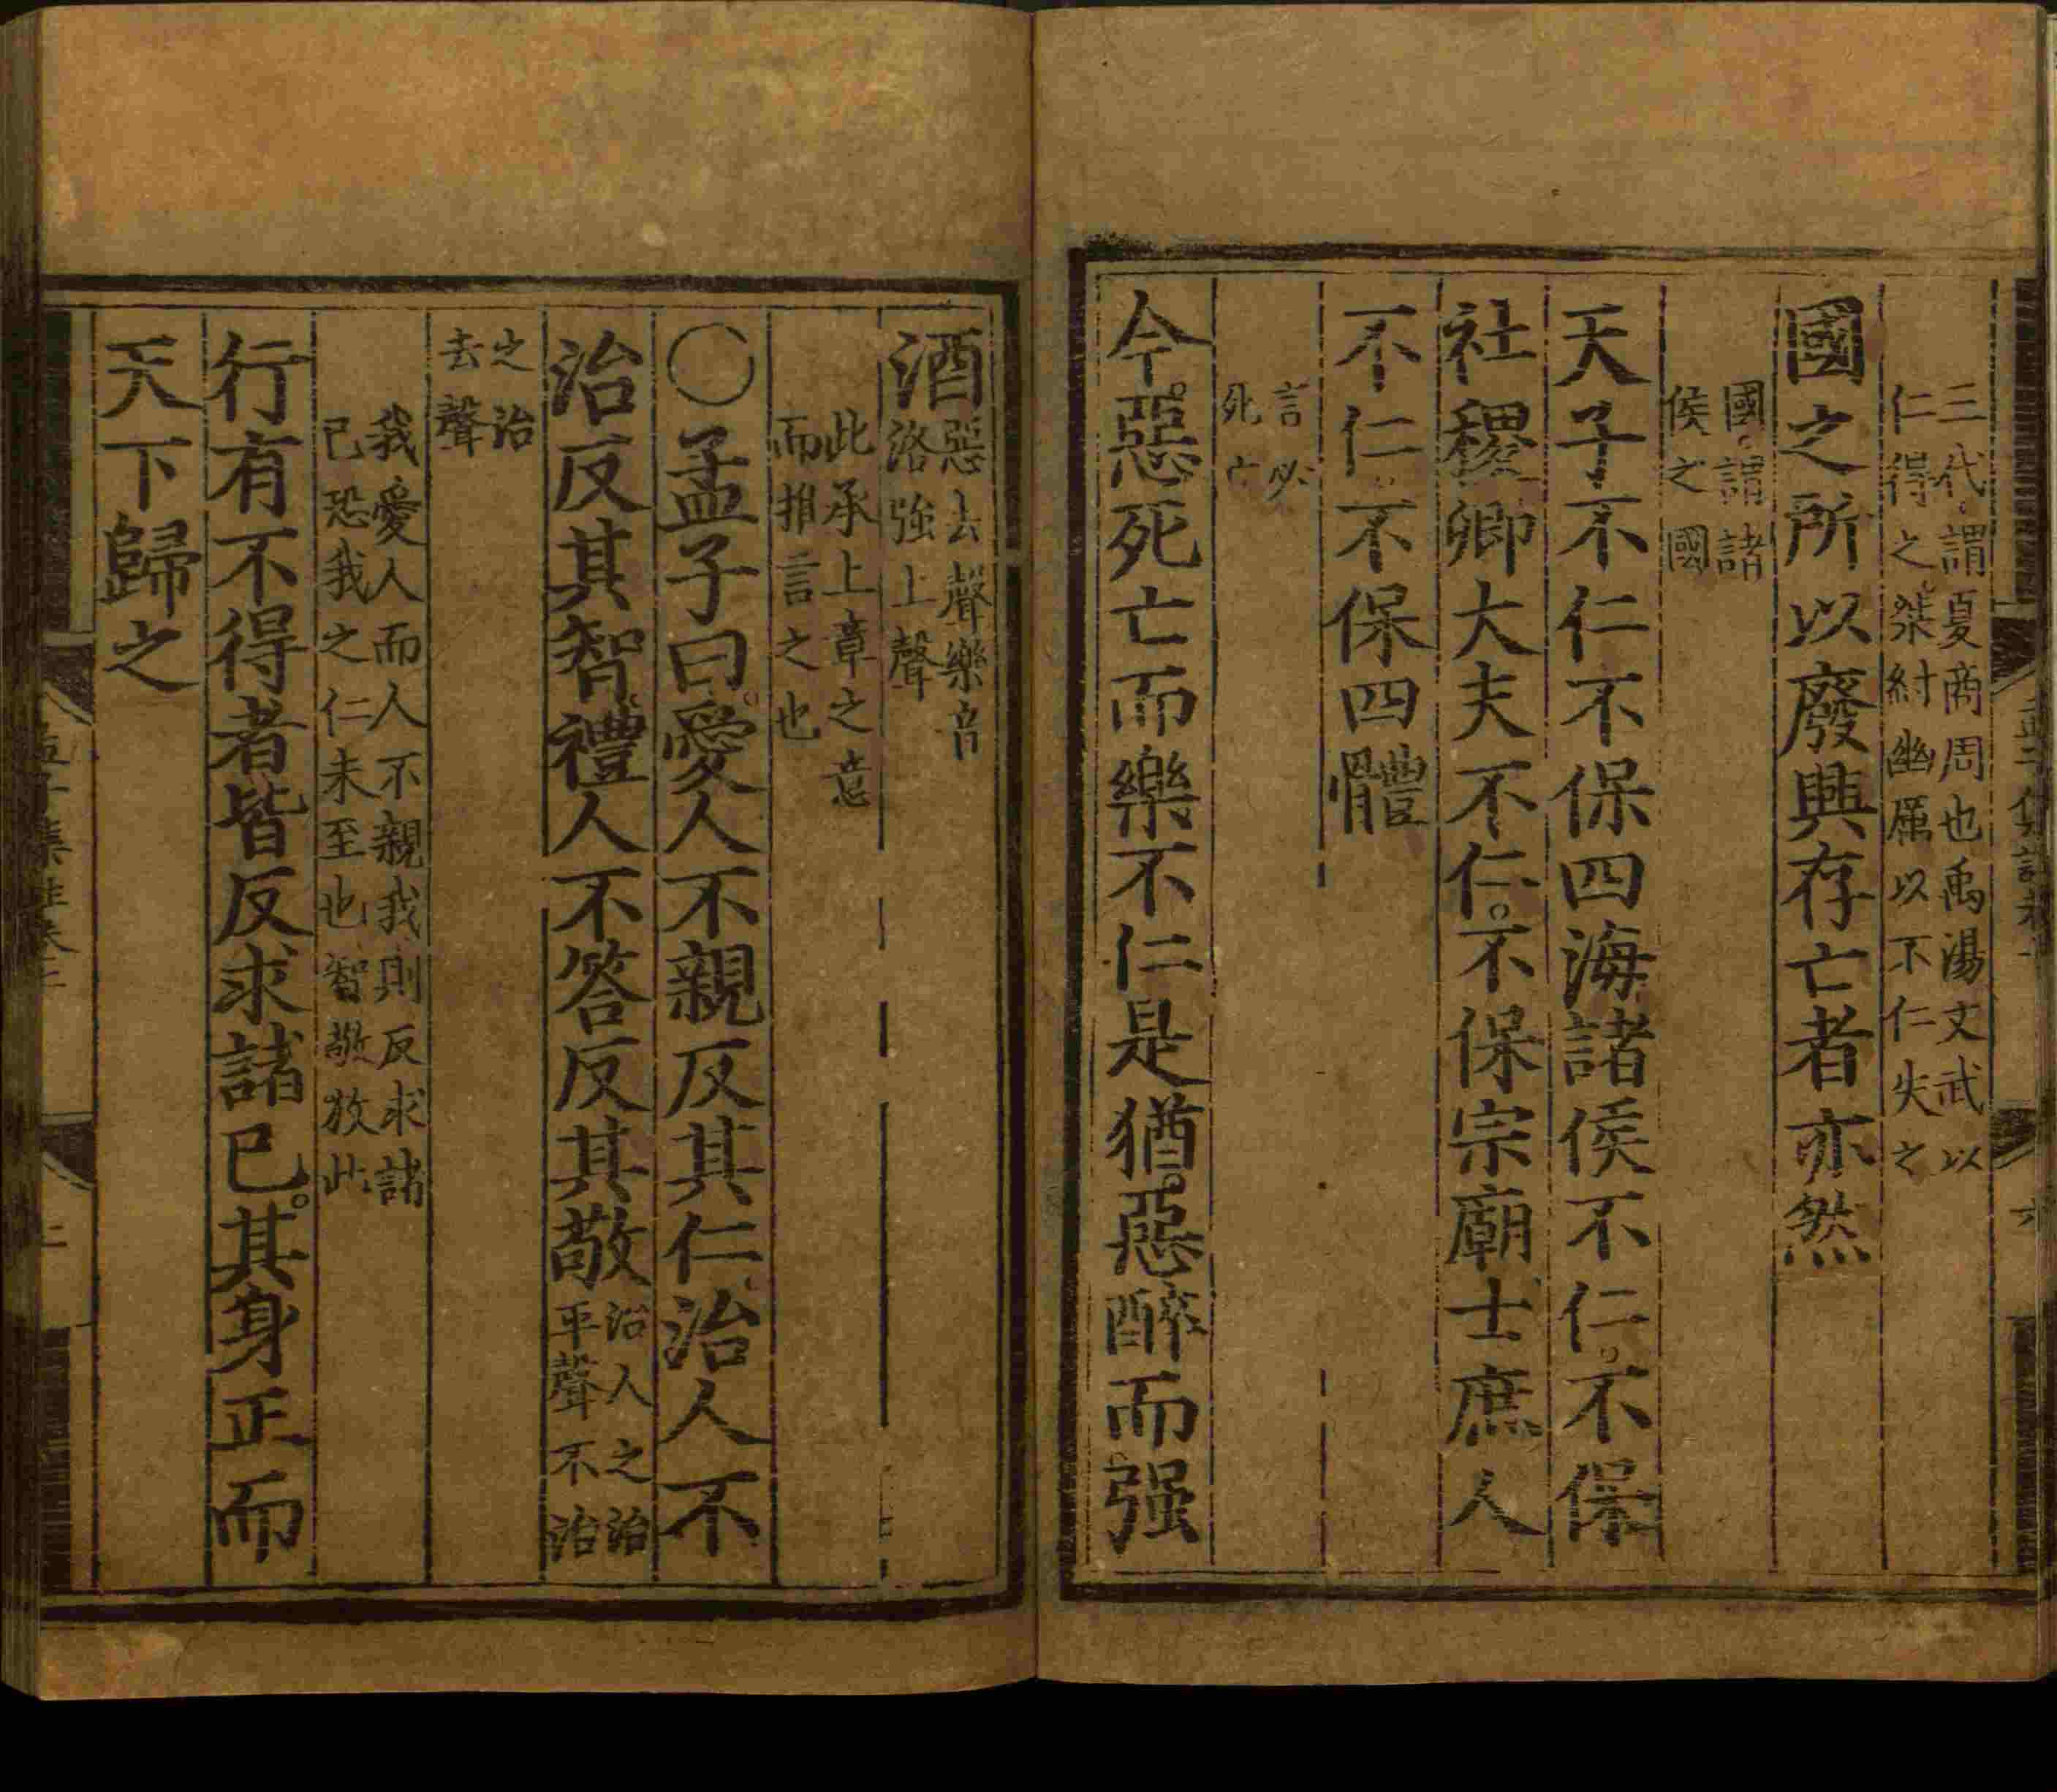 三代謂夏商周也禹湯文武以
仁得之桀紂幽厲以不仁失之
國之所以廢興存亡者亦然
國謂諸
侯之國
天子不仁不保四海諸侯不仁不保
社稷卿大夫不仁不保宗廟士庶人
不仁不保四體
言必
死亡
今惡死亡而樂不仁是猶惡醉而强
酒
惡去聲樂音
洛強上聲
此承上章之意
而推言之也
○孟子曰愛人不親反其仁治人不
治反其智禮人不答反其敬
治人之治
平聲不治
之治
去聲
我愛人而人不親我則反求諸
己恐我之仁未至也智敬放此
行有不得者皆反求諸己其身正而
天下歸之